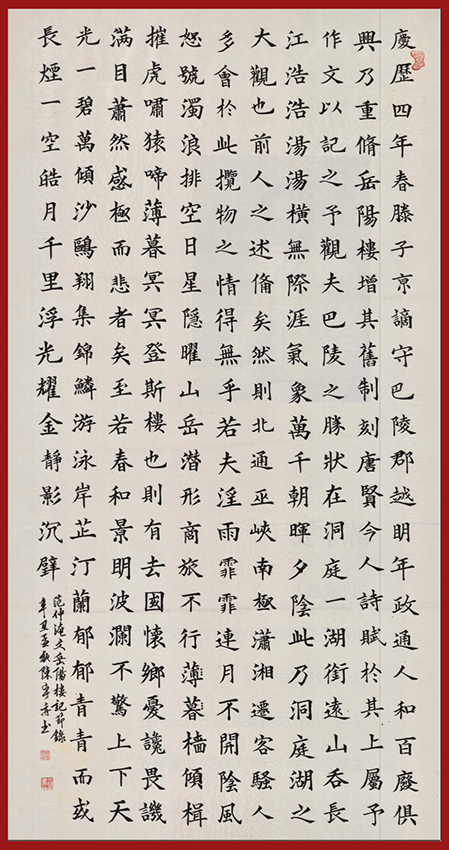 慶歷四年春滕子京謫守巴陵郡越明年政通人和百廢俱
興乃重脩岳陽樓增其舊制刻唐賢今人詩賦於其上屬予
作文以記之予觀夫巴陵之勝狀在洞庭一湖銜遠山吞長
江浩浩湯湯橫無際涯氣象萬千朝暉夕陰此乃洞庭湖之
大觀也前人之述俻矣然則北通巫峽南極瀟湘遷客騷人
多會於此攬物之情得無乎若夫淫雨霏霏連月不開陰風
怒號濁浪排空日星隱曜山岳潛形商旅不行薄暮檣傾楫
摧虎嘯猿啼薄暮冥冥登斯樓也則有去國懷鄉憂讒畏譏
滿目蕭然感極而悲者矣至若春和景明波瀾不驚上下天
光一碧萬傾沙鷗翔集錦鱗游泳岸芷汀蘭郁郁青青而或
長煙一空皓月千里浮光耀金靜影沉璧
范仲淹文岳陽樓記節錄
辛丑孟秋陳